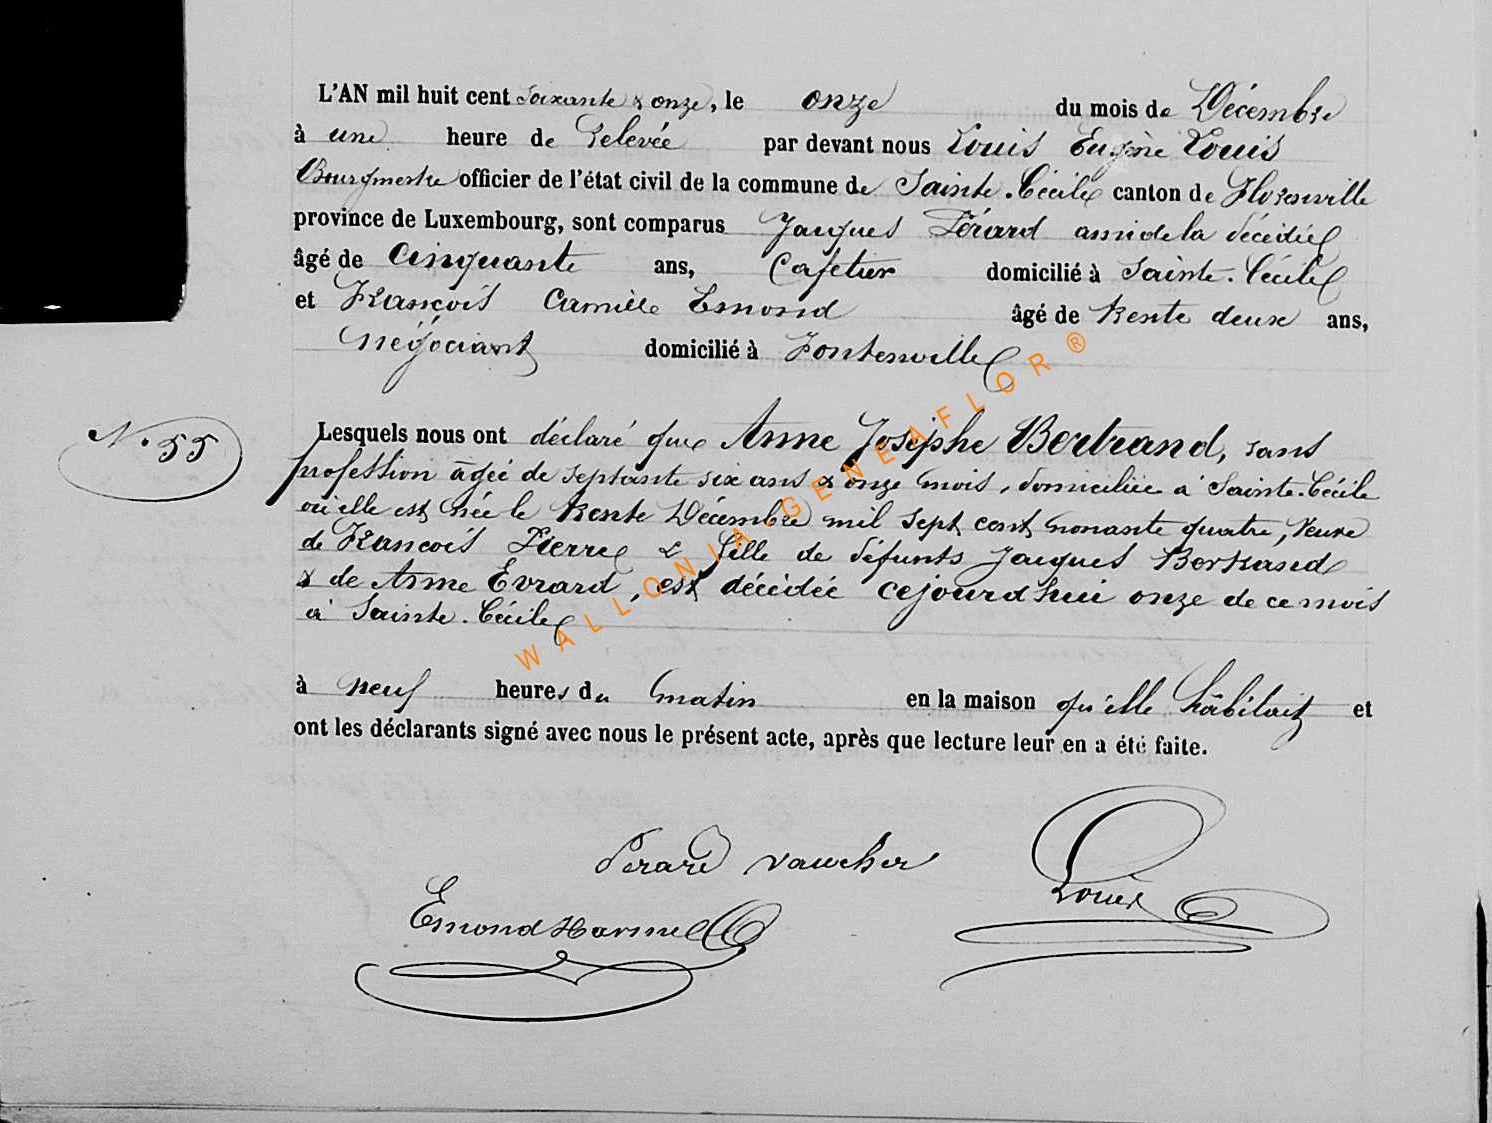 L'AN mil huit cent soixante & onze, le onze du mois de Décembre
à une heure de relevée par devant nous Louis Eugène Louis
Bourgmestre officier de l'état civil de la commune de Sainte-Cécile canton de Florenville
province de Luxembourg, sont comparus Jacques Pérard ami de la décédée
âgé de cinquante ans, Cafetier domicilié à Sainte-Cécile
et François Camille Emond âgé de trente deux ans,
négociant domicilié à Fontenoille
N. 55
Lesquels nous ont déclaré que Anne Josèphe Bertrand, sans
profession âgée de septante six ans & onze mois, domiciliée à Sainte-Cécile
où elle est née le trente Décembre mil sept cent nonante quatre, veuve
de François Pierre & fille de défunts Jacques Bertrand
& de Anne Evrard, est décédée cejourd'hui onze de ce mois
à Sainte-Cécile
à neuf heures du matin en la maison qu'elle habitait et
ont les déclarants signé avec nous le présent acte, après que lecture leur en a été faite.
Perard Vaucher
Louis
Emond Harmel
WALLONIA-GENEAFLOR®